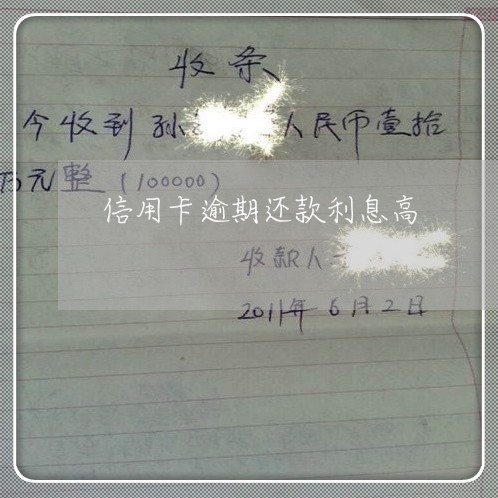 收条
今收到孙 人民币壹拾
万元整(100000)
信用卡逾期还款利息高
收款人
2011年6月2日